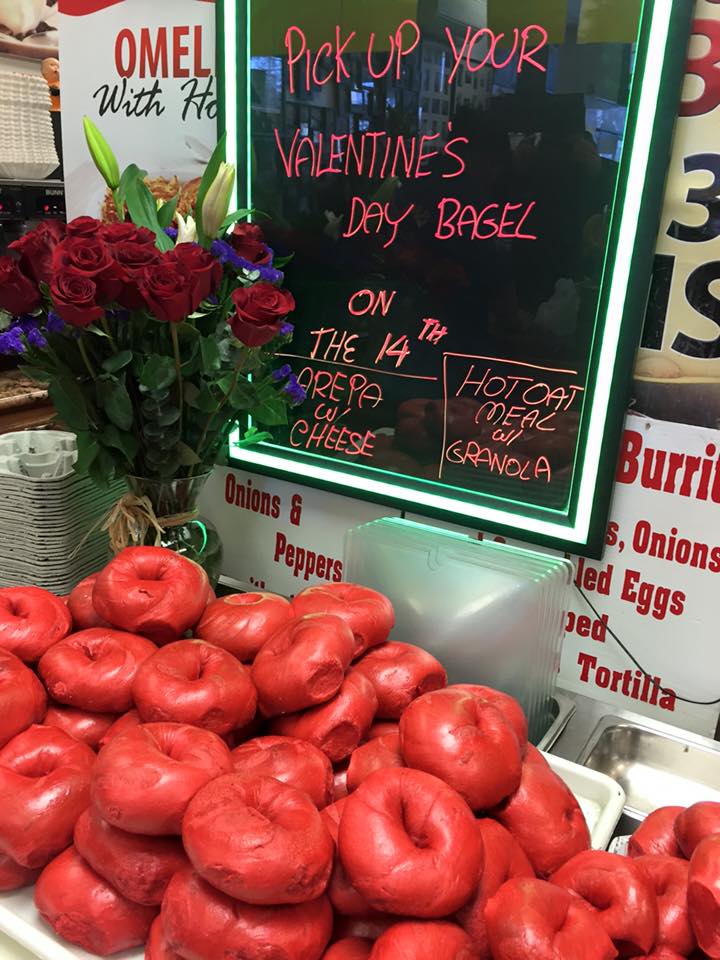 OMEL
With Ho
PICK UP YOUR
VALENTINE'S
DAY BAGEL
ON
THE 14TH
AREPA
W/
CHEESE
HOT OAT
MEAL
W/
GRANOLA
BUNN
3
Onions &
Peppers
Burrit
s, Onions
led Eggs
ped
Tortilla